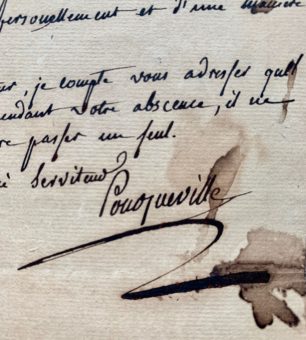 personellement et d'une manière
je compte vous adresser quel
pendant votre abscence, il ne
passer un seul.
Serviteur
Pouqueville